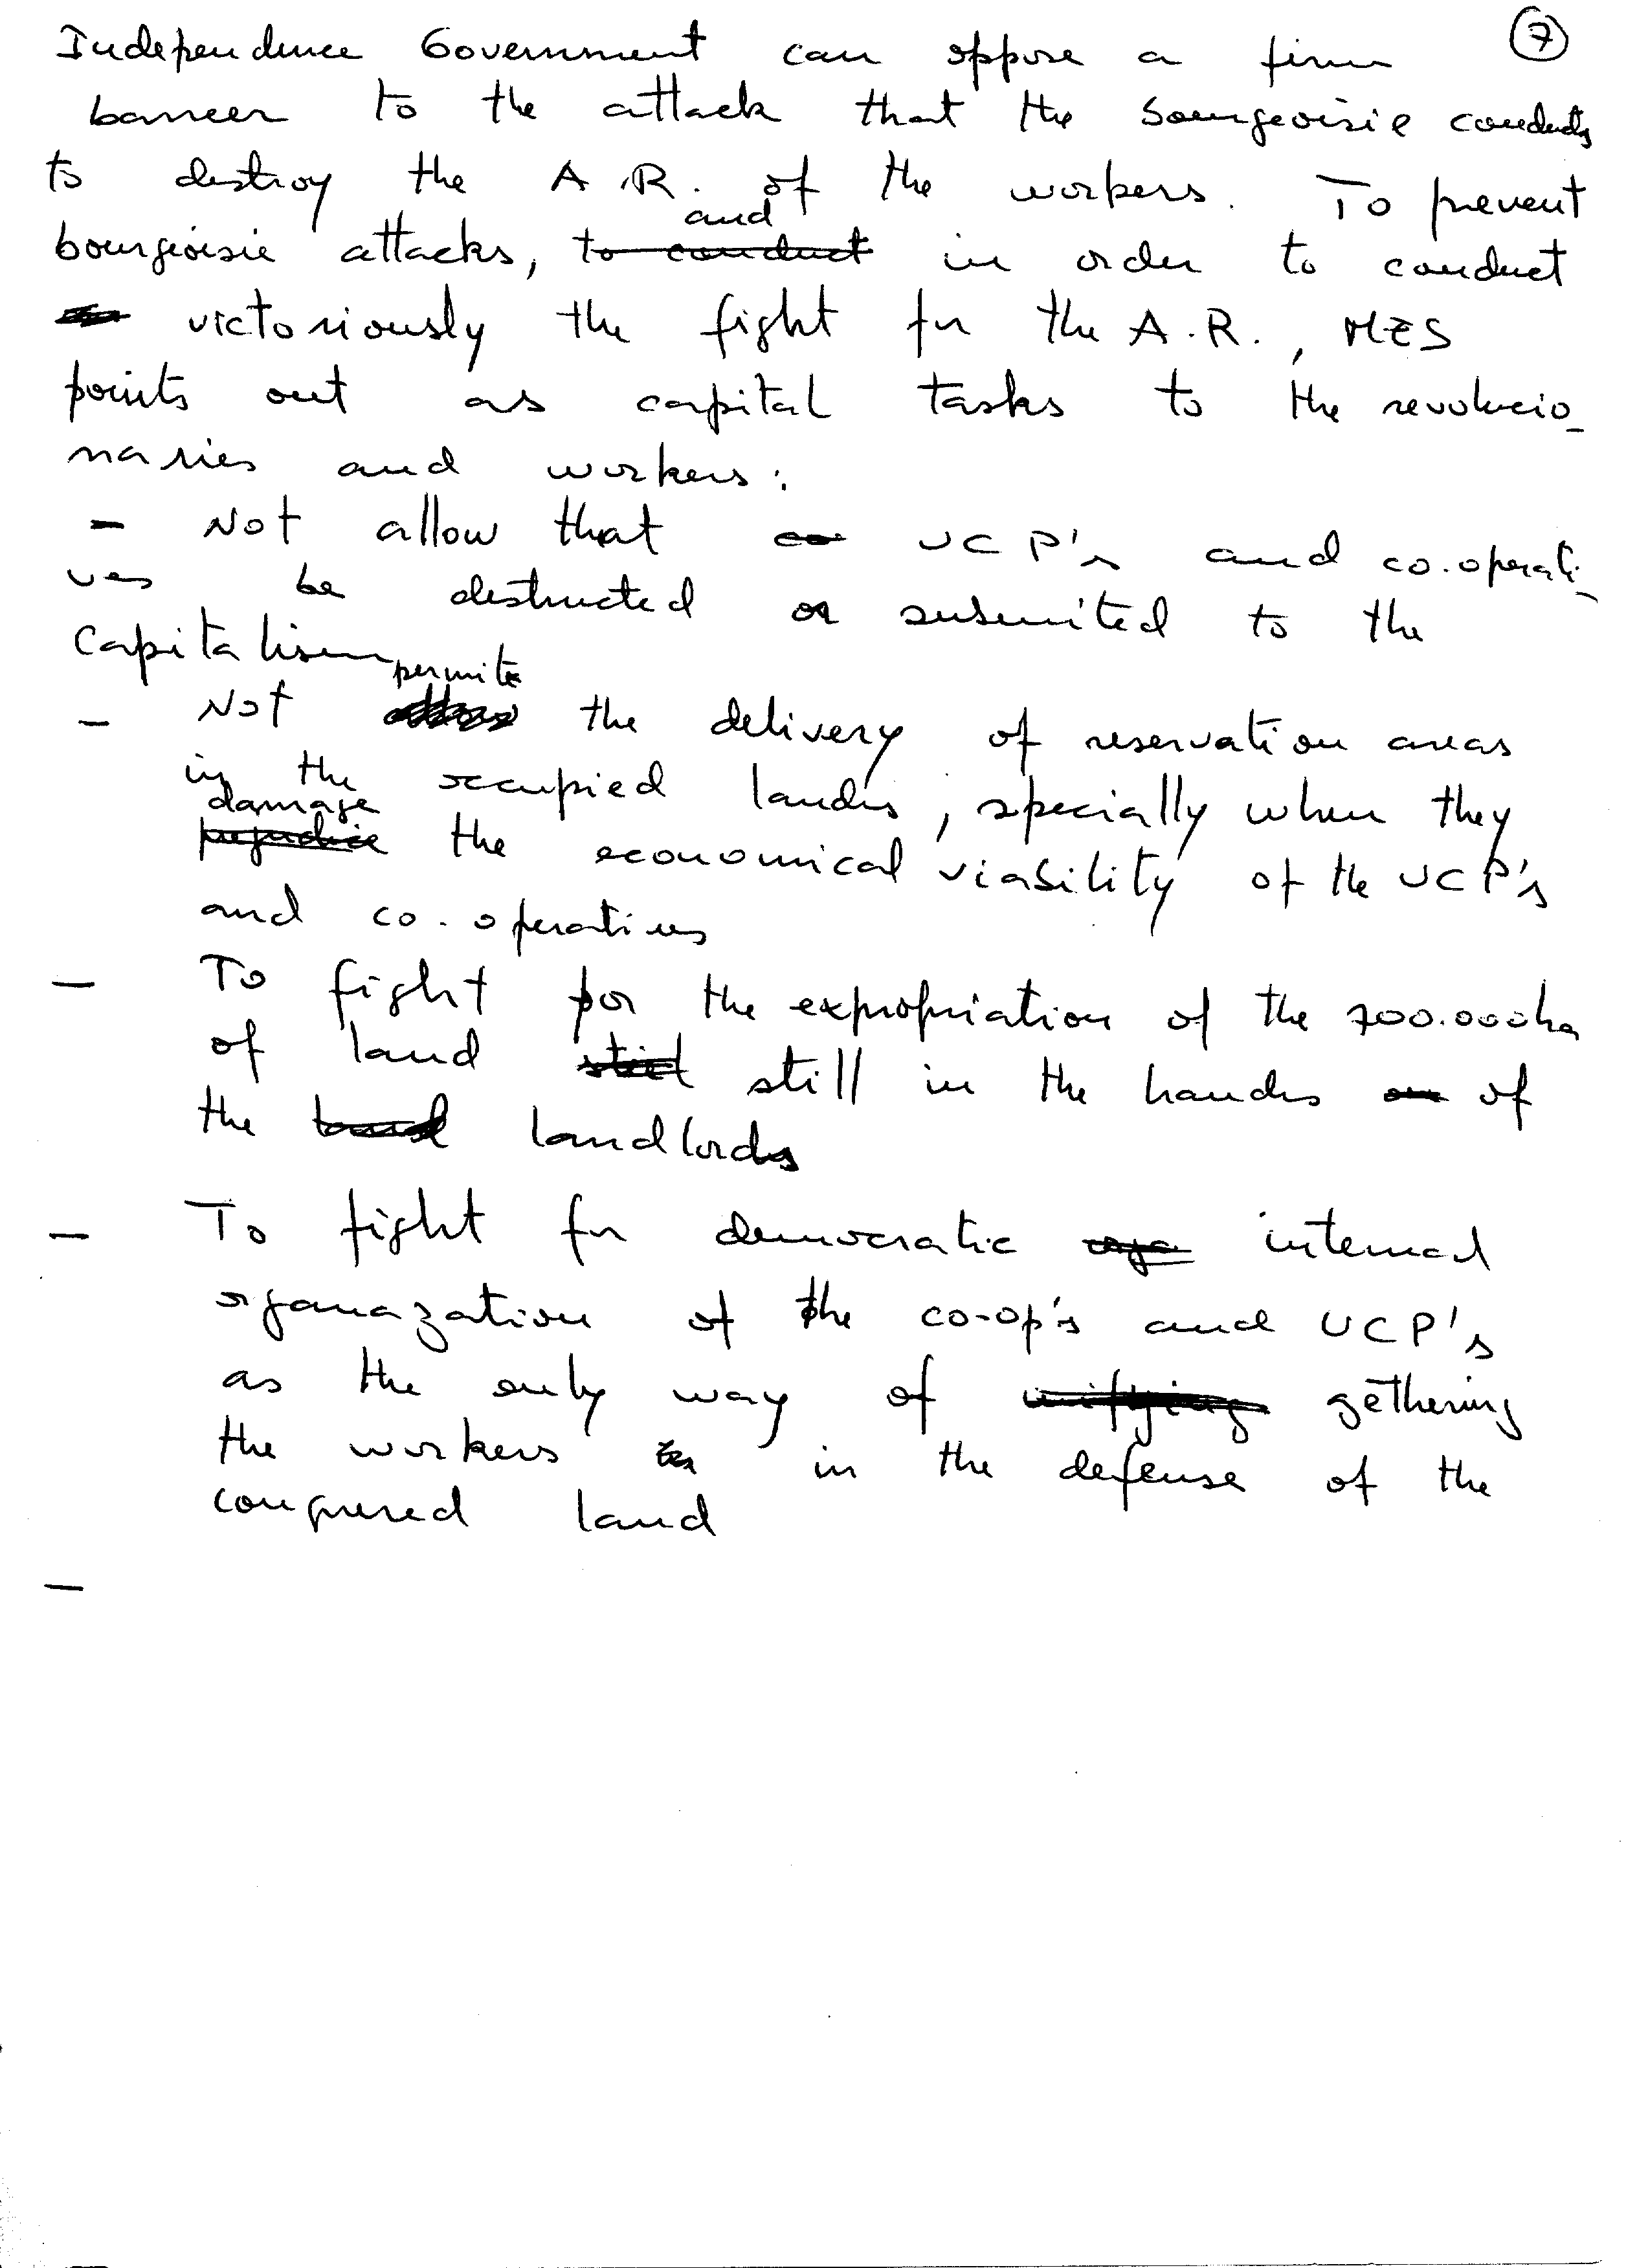 Independence Government can oppose a firm ⑦
barreer to the attack that the bourgeoisie conducts
to destroy the A.R. of the workers. To prevent
and
bourgeoisie attacks, to conduct in order to conduct
victoriously the fight for the A.R., MES
points out as capital tasks to the revolucio_
naries and workers:
- Not allow that UCP's and co.operati_
ves be destructed or submited to the
Capitalism
permite
- Not the delivery of reservation areas
in the occupied lands, specially when they
damage
prejudice the economical viability of the UCP's
and co.operatives
- To fight for the expropriation of the 700.000ha
of land still in the hands of
the landlords
- To fight for democratic orga internal
organazation of the co-op's and UCP's
as the only way of unifying gethering
the workers in the defense of the
conquered land
-